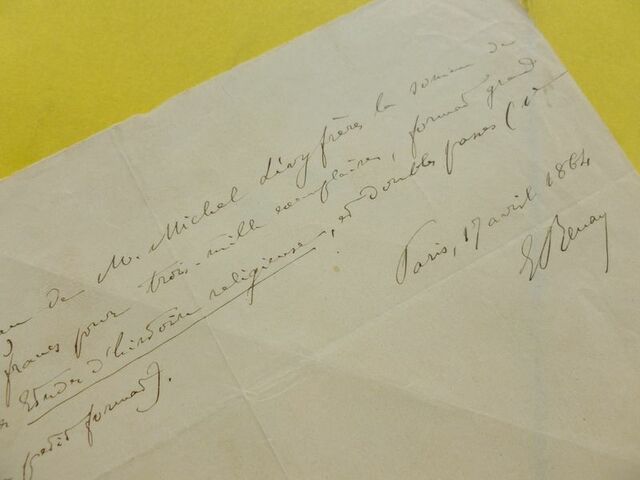 de M. Michel Lévy frères la somme de
francs pour trois-mille exemplaires, format grand
Etudes d'histoire religieuse, et doubles passes (in
petit format).
Paris, 17 avril 1864
E Renan